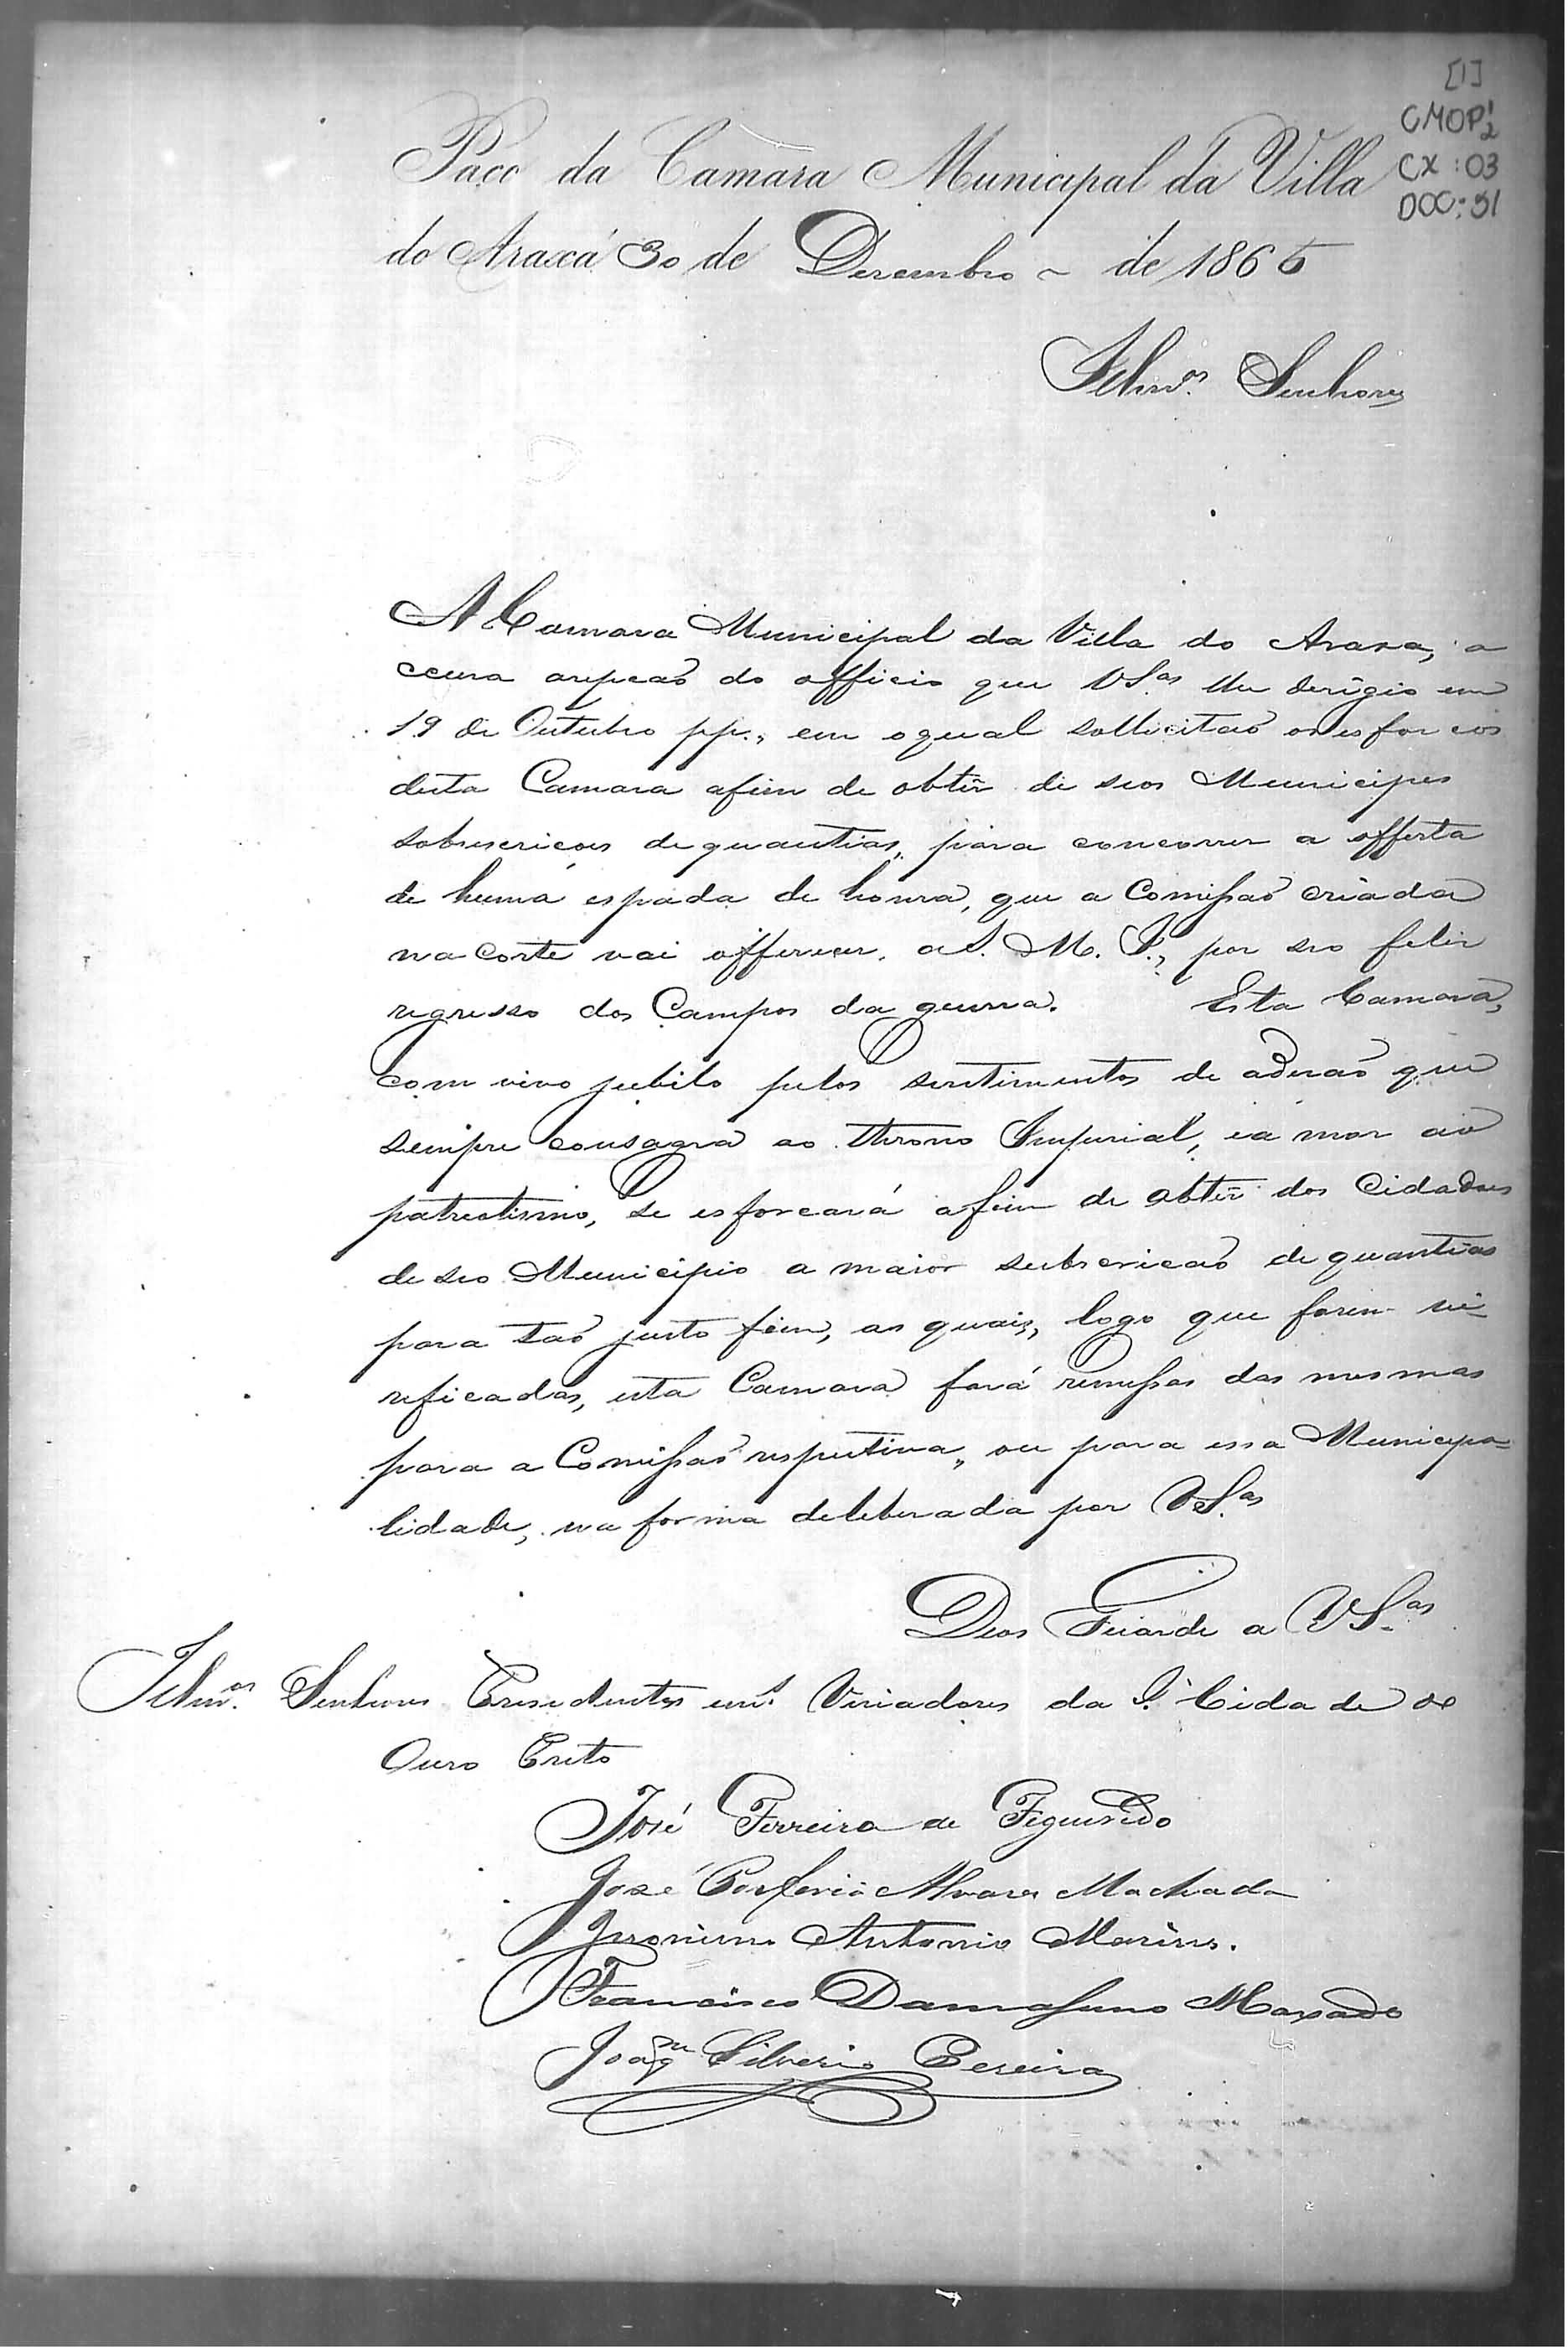 [1]
CMOP 1/2
CX: 03
DOC: 51
Paço da Camara Municipal da Villa
do Araxá 30 de Dezembro de 1865
Illmos. Senhores
A Camara Municipal da Villa do Araxa, a
ccuza arepcaõ do officio que VSas. lhe derigio em
19 de Outubro pp., em oqual sollicitaõ os esforcos
desta Camara afim de obter de seos Municipes
sobscricoes de quantias, para concorrer a offerta
de huma espada de honra, que a Comissaõ criada
na Corte vai offerecer, a S. M. I., por seo feliz
regresso dos Campos da guerra. Esta Camara,
com vivo jubilo pelos sentimentos de adezaõ que
sempre consagra ao throno Imperial, e amor ao
patreotismo, se esforcará afim de obter dos Cidadoes
de seo Municipio a maior subscricaõ de quantias
para taõ justo fim, as quais, logo que forem ve
reficadas, esta Camara fará remessas das mesmas
para a Comissaõ respectiva, ou para essa Municipa=
lidade, na forma deleberada por VSas.
Deos Guarde a VSas.
Illmos. Senhores Presidentes e Veriadores da I. Cidade de
Ouro Preto
José Ferreira de Figueiredo
José Porferio Alvares Machado
Jeronimo Antonio
Francisco Damasseno Maxado
Joaqm Silverio Pereira